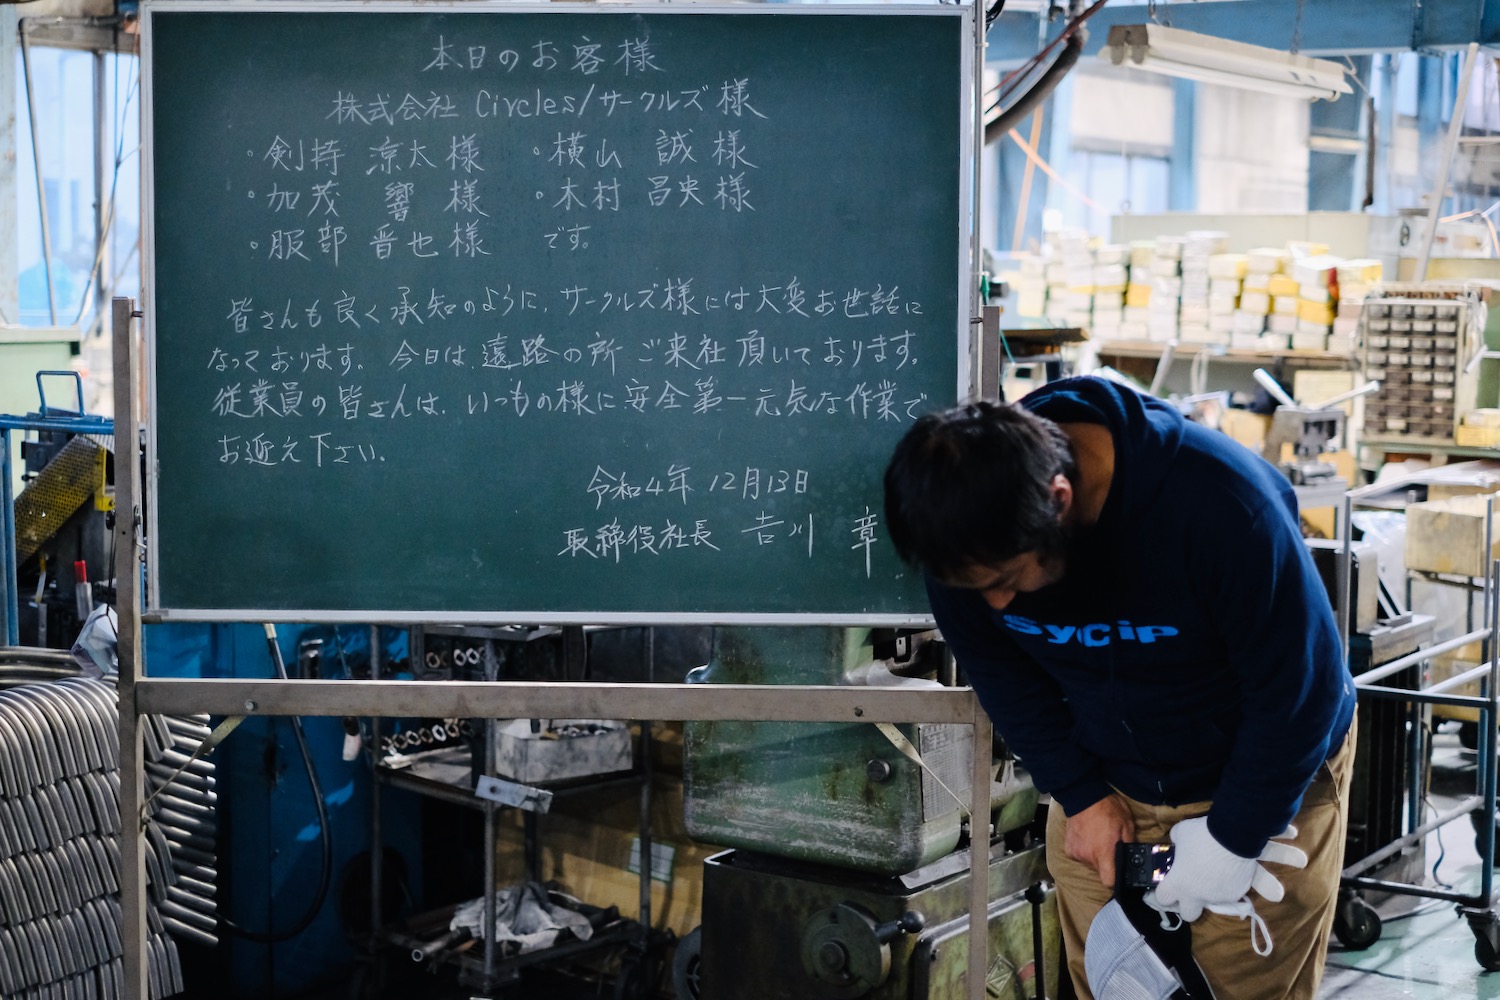 本日のお客様
株式会社 Circles/サークルズ様
・剣持 涼太様 ・横山 誠様
・加茂 響様 ・木村 昌央様
・服部 晋也様 です。
皆さんも良く承知のように、サークルズ様には大変お世話に
なっております。今日は、遠路の所 ご来社頂いております。
従業員の皆さんは、いつもの様に安全第一元気な作業で
お迎え下さい。
令和4年 12月13日
取締役社長 吉川 章
SyCip